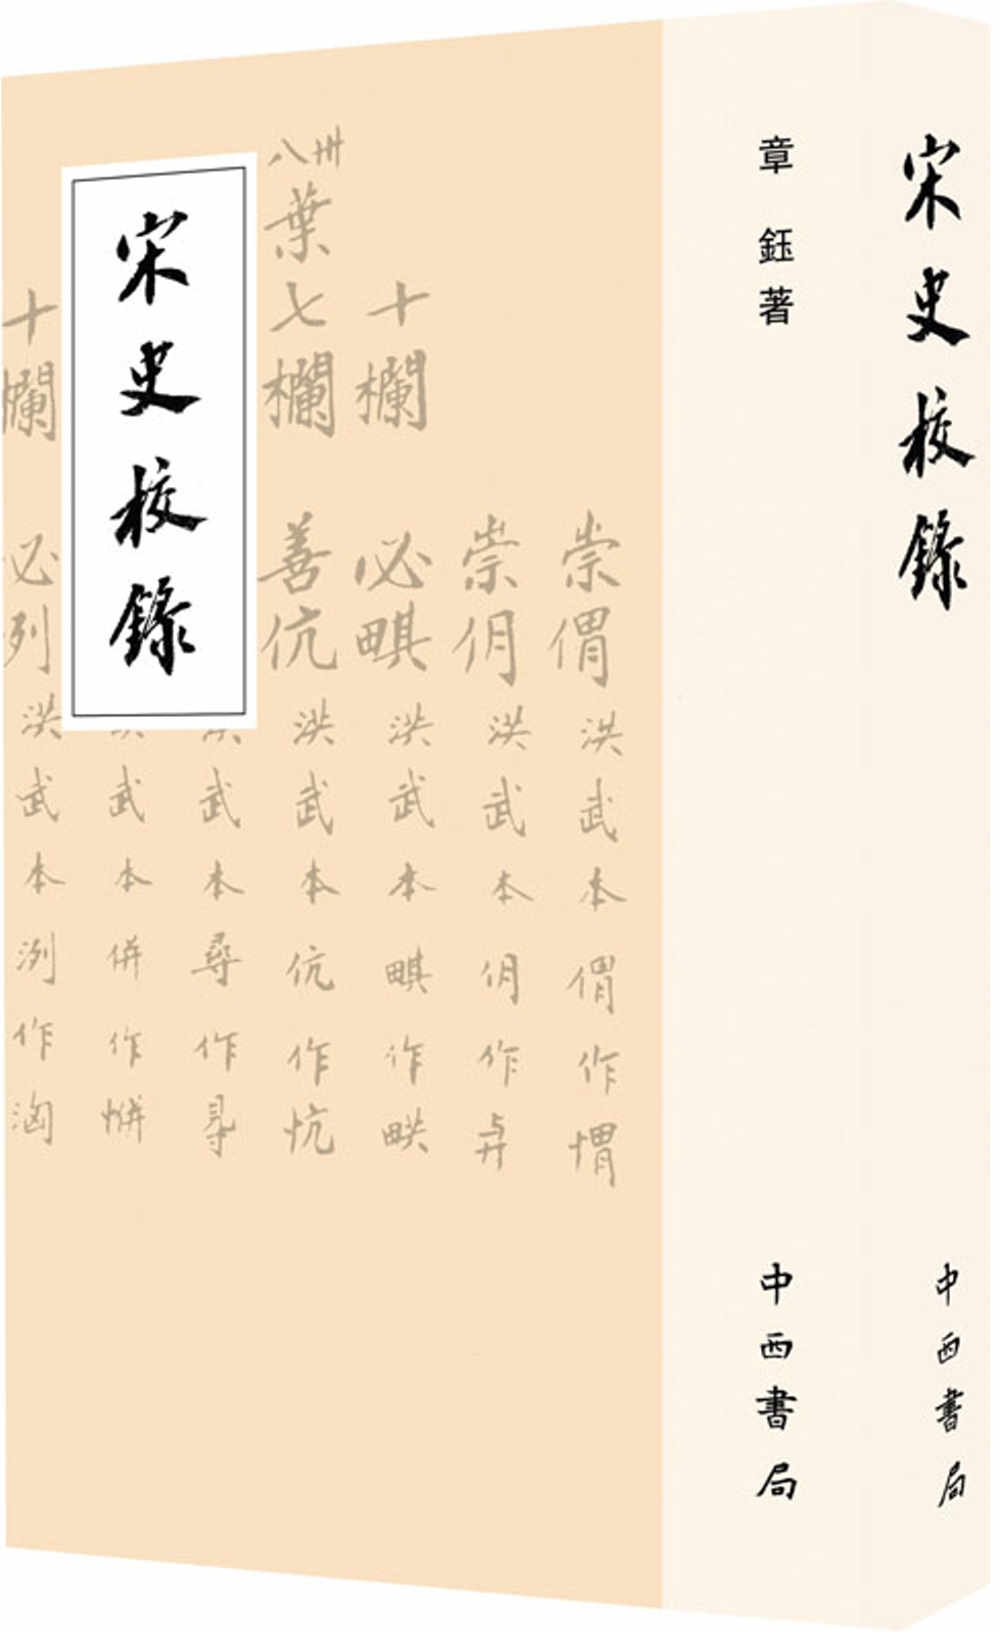 宋史校錄
中西書局
章鈺著
中西書局
宋史校錄
崇 洪武本 作
崇仴 洪武本仴作
十欄 必 洪武本 作
卅八葉七欄 善伉 洪武本伉作忼
武本尋作
武本併作恲
十欄 必列 洪武本洌作